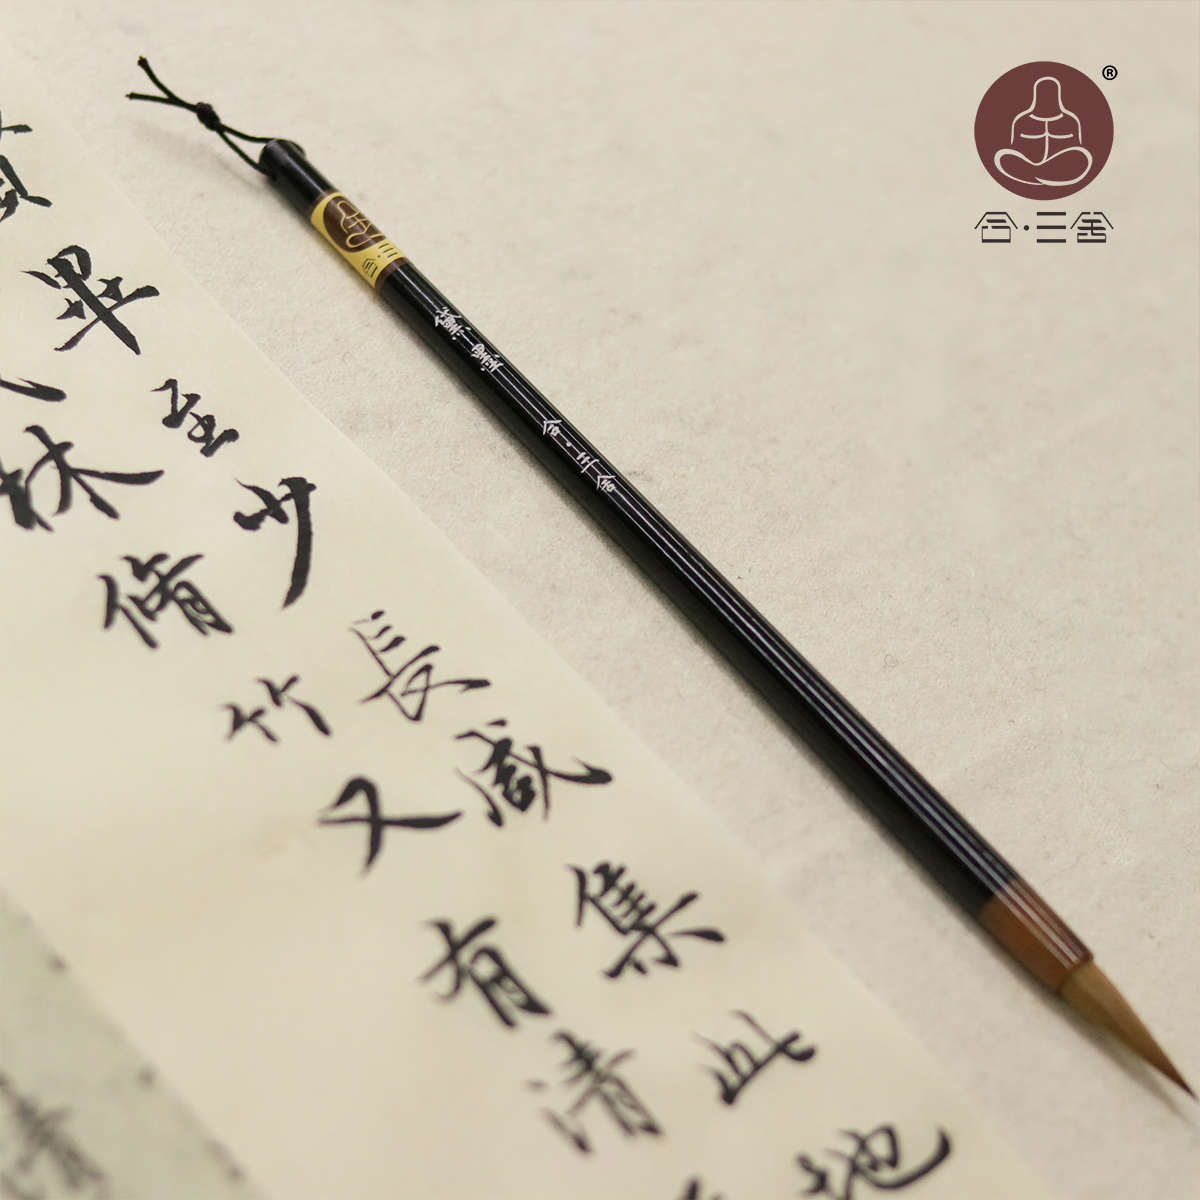 合·三舍
合·三舍
畢至少長咸集此地
林脩竹又有清